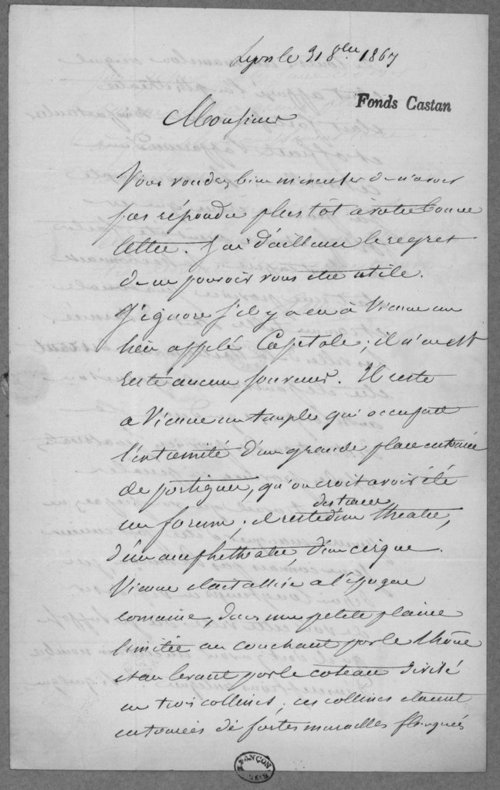 Lyon le 31 8bre 1867
Fonds Castan
Monsieur
Vous voudrez bien m'excuser de n'avoir
pas répondu plus tôt à votre bonne
lettre. J'ai d'ailleurs le regret
de ne pouvoir vous être utile.
J'ignore s'il y a eu à Vienne un
lieu appelé Capitole ; il n'en est
resté aucun souvenir. Il reste
à Vienne un temple qui occupait
l'extrémité d'une grande place entourée
de portiques, qu'on croit avoir été
un forum ; il reste des traces d'un théatre,
d'un amphithéatre, d'un cirque.
Vienne était assise à l'époque
romaine, dans une petite plaine
limitée au couchant par le Rhône
et au levant par le coteau divisé
en trois collines ; ces collines étaient
entourées de fortes murailles flanquées